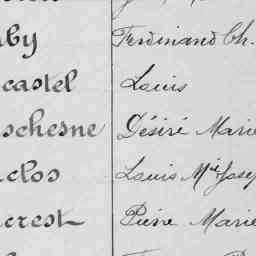 by Ferdinand Ch.
castel Louis
schesne Désiré Marie
clos Louis Mie Josep
crest Pierre Marie